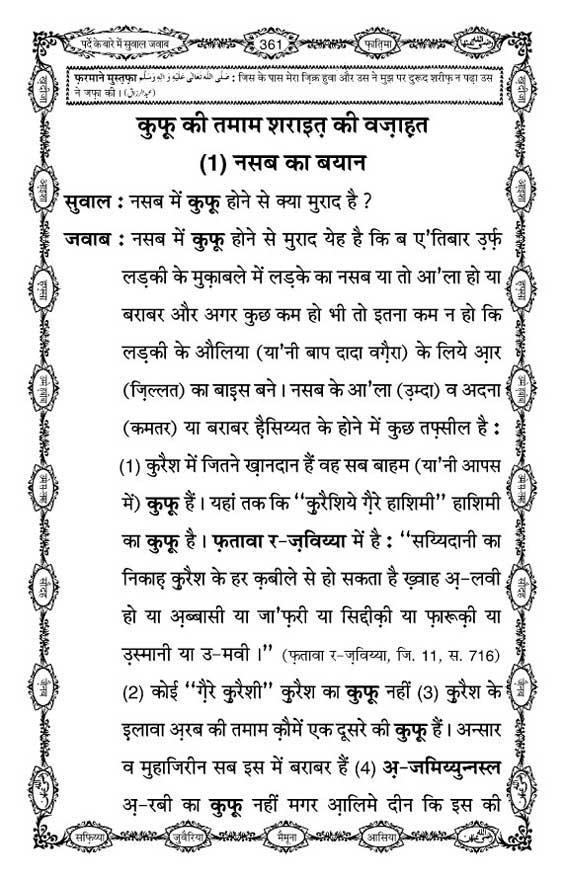 पर्दे के बारे में सुवाल जवाब
361
फ़ातिमा
फ़रमाने मुस्तफ़ा صَلَّى اللهُ تَعَالٰى عَلَيْهِ وَاٰلِهٖ وَسَلَّم : जिस के पास मेरा ज़िक्र हुवा और उस ने मुझ पर दुरूद शरीफ़ न पढ़ा उस
ने जफ़ा की । (عبدالرزاق)
कुफ़ू की तमाम शराइत़ की वज़ाह़त
(1) नसब का बयान
सुवाल : नसब में कुफ़ू होने से क्या मुराद है ?
जवाब : नसब में कुफ़ू होने से मुराद येह है कि ब ए'तिबार उ़र्फ़
लड़की के मुक़ाबले में लड़के का नसब या तो आ'ला हो या
बराबर और अगर कुछ कम हो भी तो इतना कम न हो कि
लड़की के औलिया (या'नी बाप दादा वग़ैरा) के लिये आ़र
(ज़िल्लत) का बाइ़स बने । नसब के आ'ला (उ़म्दा) व अदना
(कमतर) या बराबर ह़ैसिय्यत के होने में कुछ तफ़्सील है :
(1) कुरैश में जितने ख़ानदान हैं वह सब बाहम (या'नी आपस
में) कुफ़ू हैं । यहां तक कि “कुरैशिये ग़ैरे हाशिमी” हाशिमी
का कुफ़ू है । फ़तावा र-ज़विय्या में है : “सय्यिदानी का
निकाह़ कुरैश के हर क़बीले से हो सकता है ख़्वाह अ़-लवी
हो या अ़ब्बासी या जा'फ़री या सिद्दीक़ी या फ़ारूक़ी या
उ़स्मानी या उ-मवी ।” (फ़तावा र-ज़विय्या, जि. 11, स. 716)
(2) कोई “ग़ैरे कुरैशी” कुरैश का कुफ़ू नहीं (3) कुरैश के
इ़लावा अ़रब की तमाम क़ौमें एक दूसरे की कुफ़ू हैं । अन्सार
व मुहाजिरीन सब इस में बराबर हैं (4) अ़-जमिय्युन्नस्ल
अ़-रबी का कुफ़ू नहीं मगर आ़लिमे दीन कि इस की
सफ़िय्या
जुवैरिया
मैमूना
आसिया